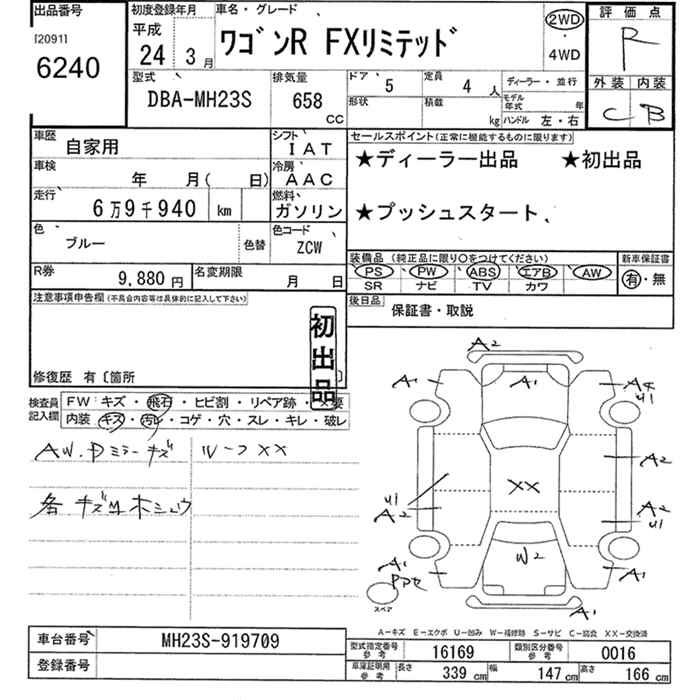 出品番号
[2091]
6240
初度登録年月
平成
24 3月
車名・グレード
ワゴンR FXリミテッド
2WD
・
4WD
評価点
R
外装 内装
C B
型式
DBA-MH23S
排気量
658
cc
ドア 5
定員 4 人
ディーラー・並行
形状
積載 kg
モデル年式 年
ハンドル 左・右
車歴
自家用
シフト
IAT
車検
年 月( 日)
冷房
AAC
走行
6万9千940 km
燃料
ガソリン
色
ブルー
色替
色コード
ZCW
R券
9,880円
名変期限
月 日
セールスポイント(正常に機能するものに限ります)
★ディーラー出品 ★初出品
★プッシュスタート、
装備品(純正品に限り○をつけてください)
PS・PW・ABS・エアB・AW
SR ナビ TV カワ
新車保証書
有・無
後日品
保証書・取説
注意事項申告欄(不具合内容等は具体的に記入して下さい)
初出品
修復歴 有〔箇所 〕
検査員記入欄
FW キズ・飛石・ヒビ割・リペア跡・X要
内装 キズ・汚れ・コゲ・穴・スレ・キレ・破レ
AW.Dミラーキズ
ルーフXX
各キズ凹ホシュウ
A2
A1 A1 A4
U1
A2
XX
U1
A2
A2
U1
W2
A1
PPセ
A1
スペア
A1
A-キズ E-エクボ U-凹み W-補修跡 S-サビ C-腐食 XX-交換済
車台番号
MH23S-919709
登録番号
型式指定番号
参考
16169
類別区分番号
参考
0016
車庫証明用
参考
長さ 339 cm
幅 147 cm
高さ 166 cm